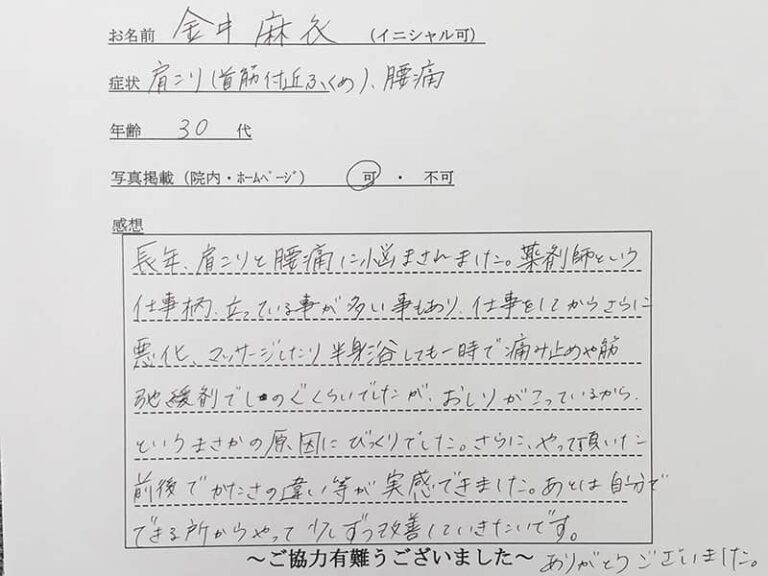 お名前 金中 麻衣 (イニシャル可)
症状 肩こり(首筋付近ふくめ)、腰痛
年齢 30 代
写真掲載(院内・ホームページ) 可 ・ 不可
感想
長年、肩こりと腰痛に悩まされました。薬剤師という
仕事柄、立っている事が多い事もあり、仕事をしてからさらに
悪化、マッサージしたり半身浴しても一時で痛み止めや筋
弛緩剤でしのぐくらいでしたが、おしりがこっているから、
というまさかの原因にびっくりでした。さらに、やって頂いた
前後でかたさの違い等が実感できました。あとは自分で
できる所からやって少しずつ改善していきたいです。
～ご協力有難うございました～ ありがとうございました。